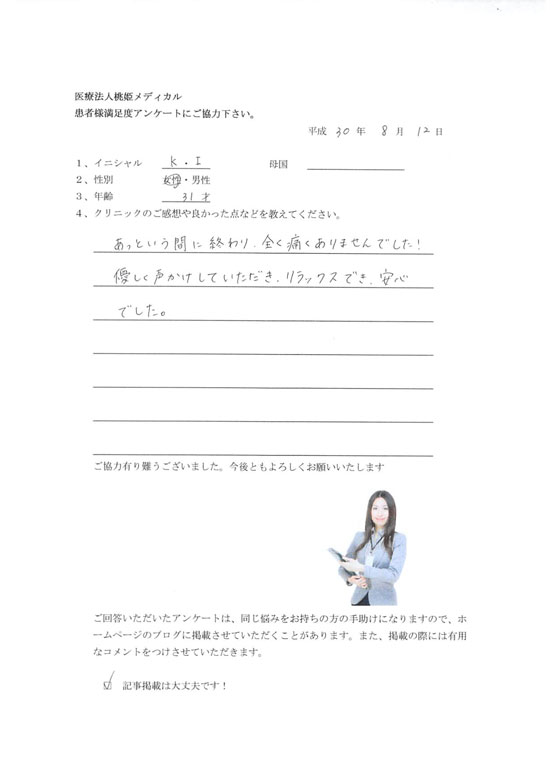 医療法人桃姫メディカル
患者様満足度アンケートにご協力下さい。
平成 30 年 8 月 12 日
1、イニシャル K・I 母国
2、性別 女性・男性
3、年齢 31才
4、クリニックのご感想や良かった点などを教えてください。
あっという間に終わり、全く痛くありませんでした!
優しく声かけしていただき、リラックスでき、安心
でした。
ご協力有り難うございました。今後ともよろしくお願いいたします
ご回答いただいたアンケートは、同じ悩みをお持ちの方の手助けになりますので、ホ
ームページのブログに掲載させていただくことがあります。また、掲載の際には有用
なコメントをつけさせていただきます。
☑ 記事掲載は大丈夫です!